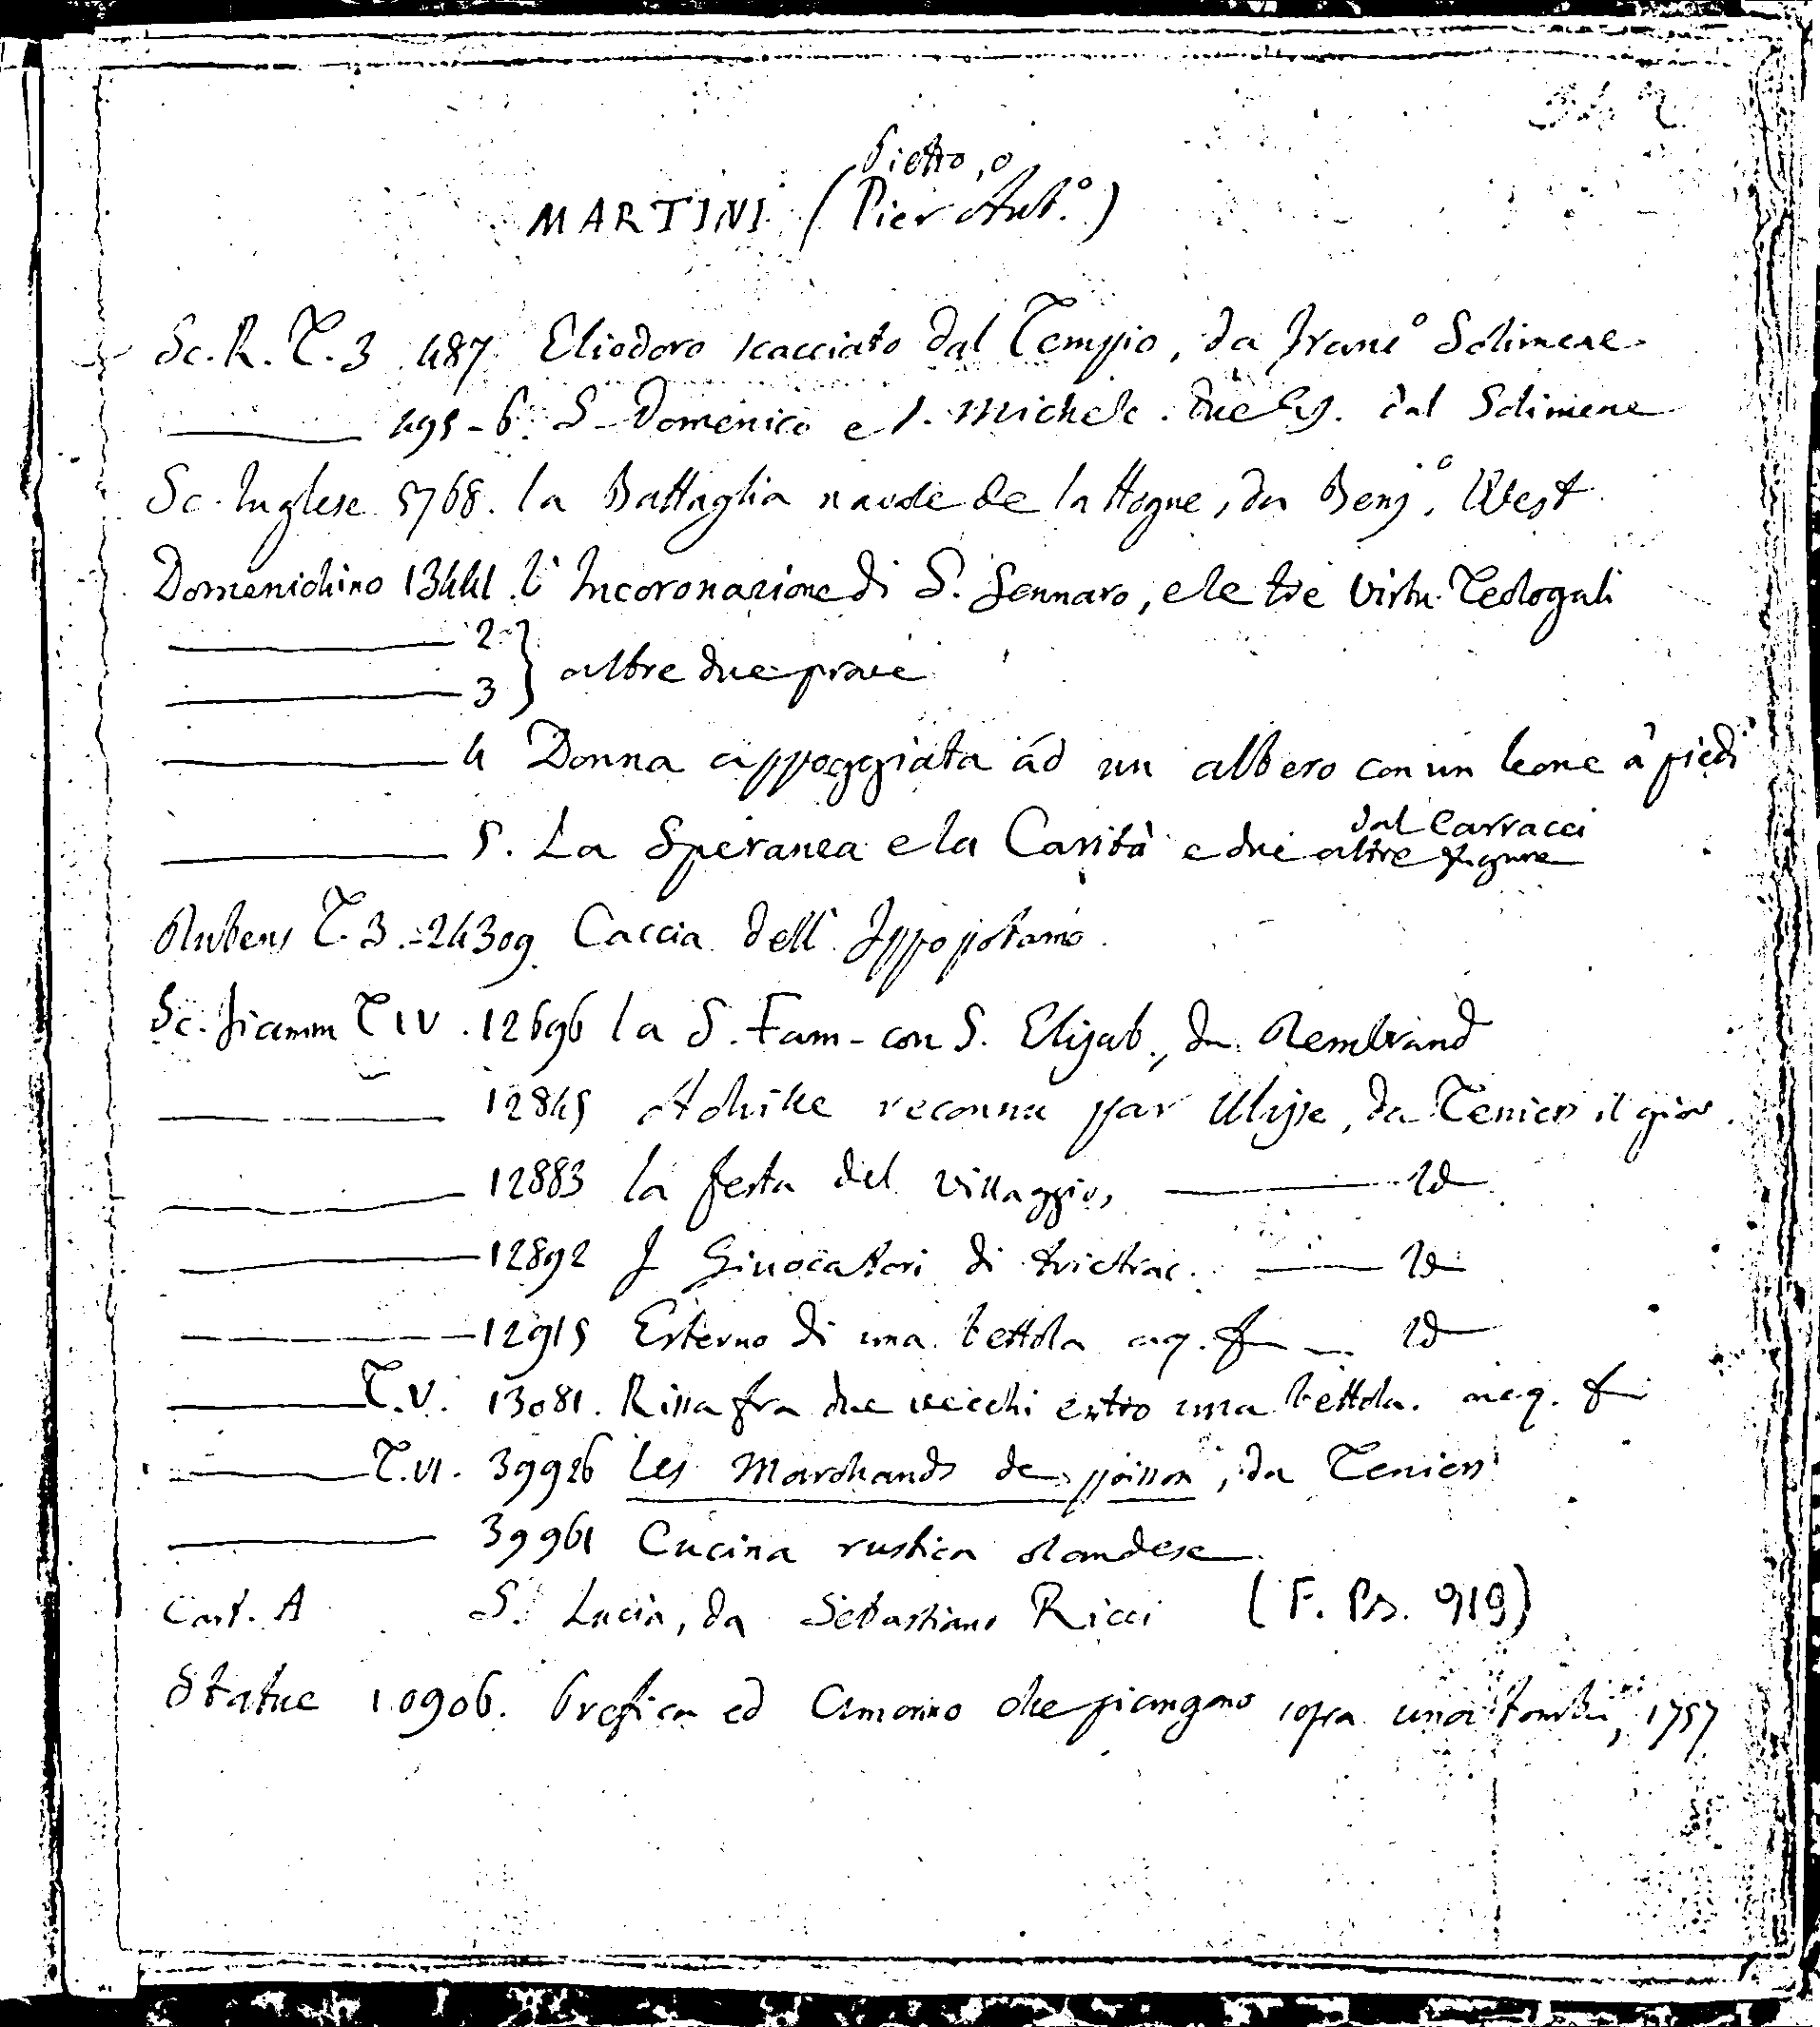 Pietro, o
MARTINI (Pier Ant.º)
Sc. R. T. 3 487 Eliodoro scacciato dal Tempio, da Franc.º Solimene
495-6. S. Domenico e S. Michele. due dal Solimene
Sc. Inglese 5768. la Battaglia navale de la Hogne, da Benj.º West
Domenichino 13441. l'Incoronazione di S. Gennaro, e le tre Virtu Teologali
2
3 } altre due prove
4 Donna appoggiata ad un albero con un leone a' piedi
dal Carracci
5. La Speranza e la Carità e due altre figure
Rubens T. 3.-24309 Caccia dell' Ippopotamo.
Sc. Fiamm T IV. 12696 la S. Fam- con S. Elisab., da Rembrand
12845 Achille reconnu par Ulysse, da Teniers il giov.
12883 la festa del villaggio, Id
12892 I Giuocatori di trictrac. Id
12915 Esterno di una bettola aq. f Id
T.V. 13081. Rissa fra due vecchi entro una bettola. acq. f
T.VI. 39926 les Marchands de poisson, da Teniers
39961 Cucina rustica olandese
Cart. A S. Lucia, da Sebastiano Ricci (F. Ps. 919)
Statue 10906. Prefica ed Amorino che piangono sopra una tomba, 1757